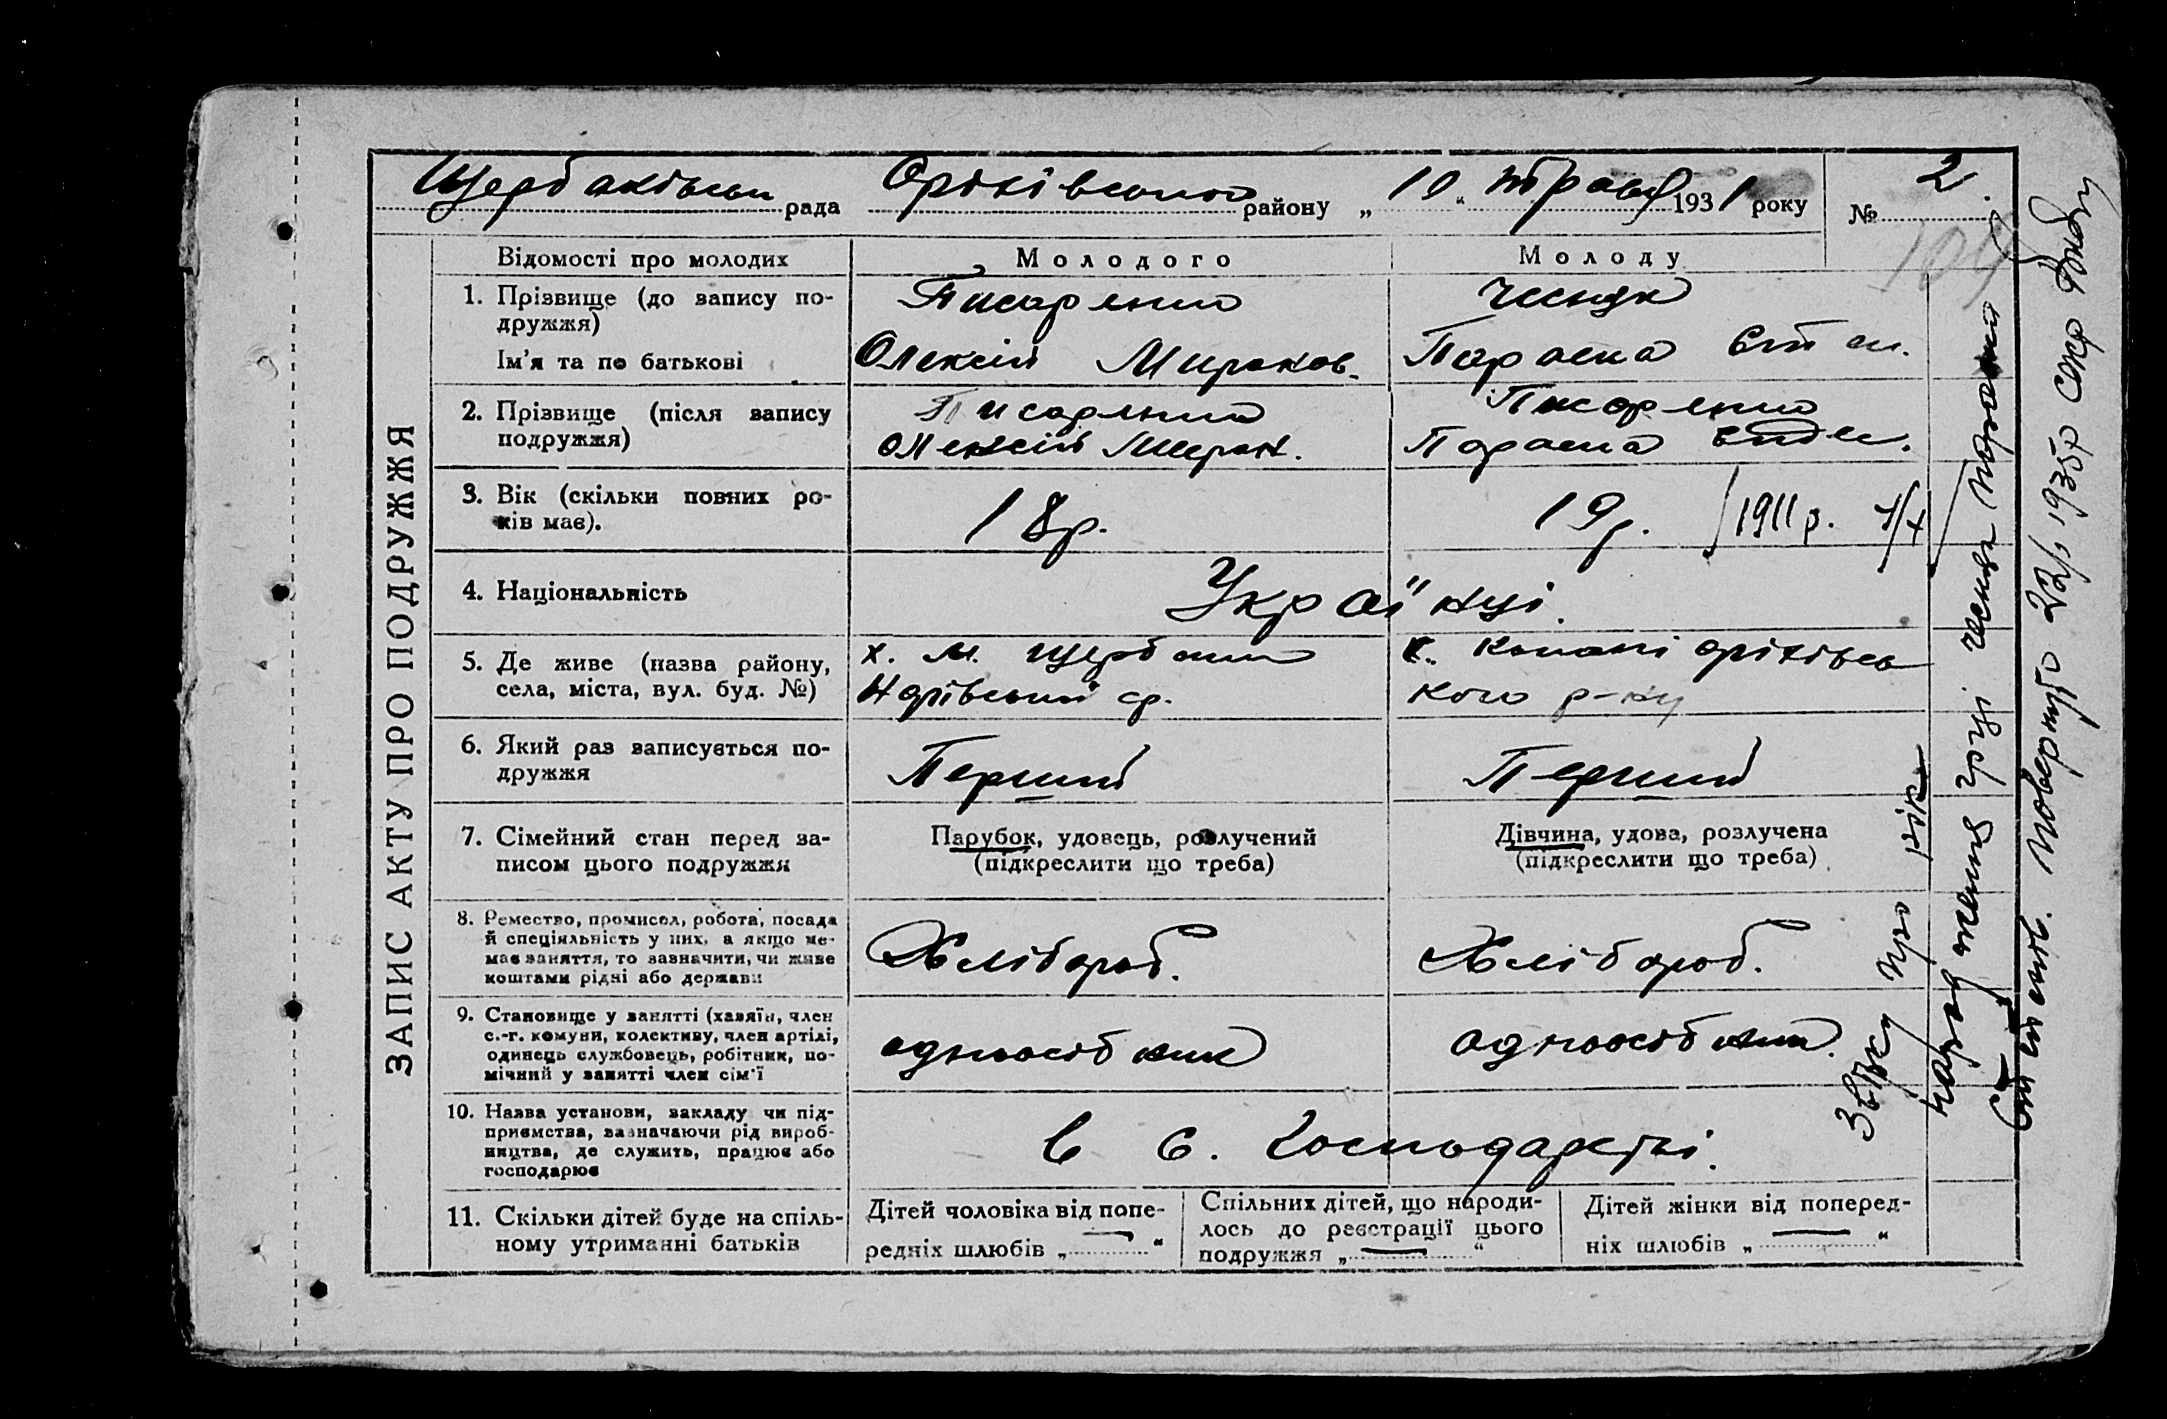 Щербаківська рада Оріхівського району „10“ травня 1931 року № 2
104
ЗАПИС АКТУ ПРО ПОДРУЖЖЯ
Відомості про молодих Молодого Молоду
1. Прізвище (до запису по-
дружжя)
Писаренко Чеснук
Ім'я та по батькові
Олексій Миронов. Параска Степ.
2. Прізвище (після запису
подружжя)
Писаренко Писаренко
Олексій Мирон. Параска
3. Вік (скільки повних ро-
ків має).
18р. 19р. 1911 р.
4. Національність
Українці.
5. Де живе (назва району,
села, міста, вул. буд. №)
х. М. Щербаки х. Копані Оріхівсь
кого р-ну
6. Який раз записується по-
дружжя
Перший Перший
7. Сімейний стан перед за-
писом цього подружжя
Парубок, удовець, розлучений
(підкреслити що треба)
Дівчина, удова, розлучена
(підкреслити що треба)
8. Ремество, промисел, робота, посада
й спеціяльність у них, а якщо не-
має заняття, то зазначити, чи живе
коштами рідні або держави
Хлібороб. Хлібороб.
9. Становище у занятті (хазяїн, член
с.-г. комуни, колективу, член артілі,
одинець службовець, робітник, по-
мічний у занятті член сім'ї
одноосібник одноосібник.
10. Назва установи, закладу чи під-
приємства, зазначаючи рід вироб-
ництва, де служить, працює або
господарює
в с. Господарстві.
11. Скільки дітей буде на спіль-
ному утриманні батьків
Дітей чоловіка від попе-
редніх шлюбів „—“
Спільних дітей, що народи-
лось до реєстрації цього
подружжя „—“
Дітей жінки від поперед-
ніх шлюбів „—“
про рік
народження гр-ці Чеснук Параски
22/I 1935р